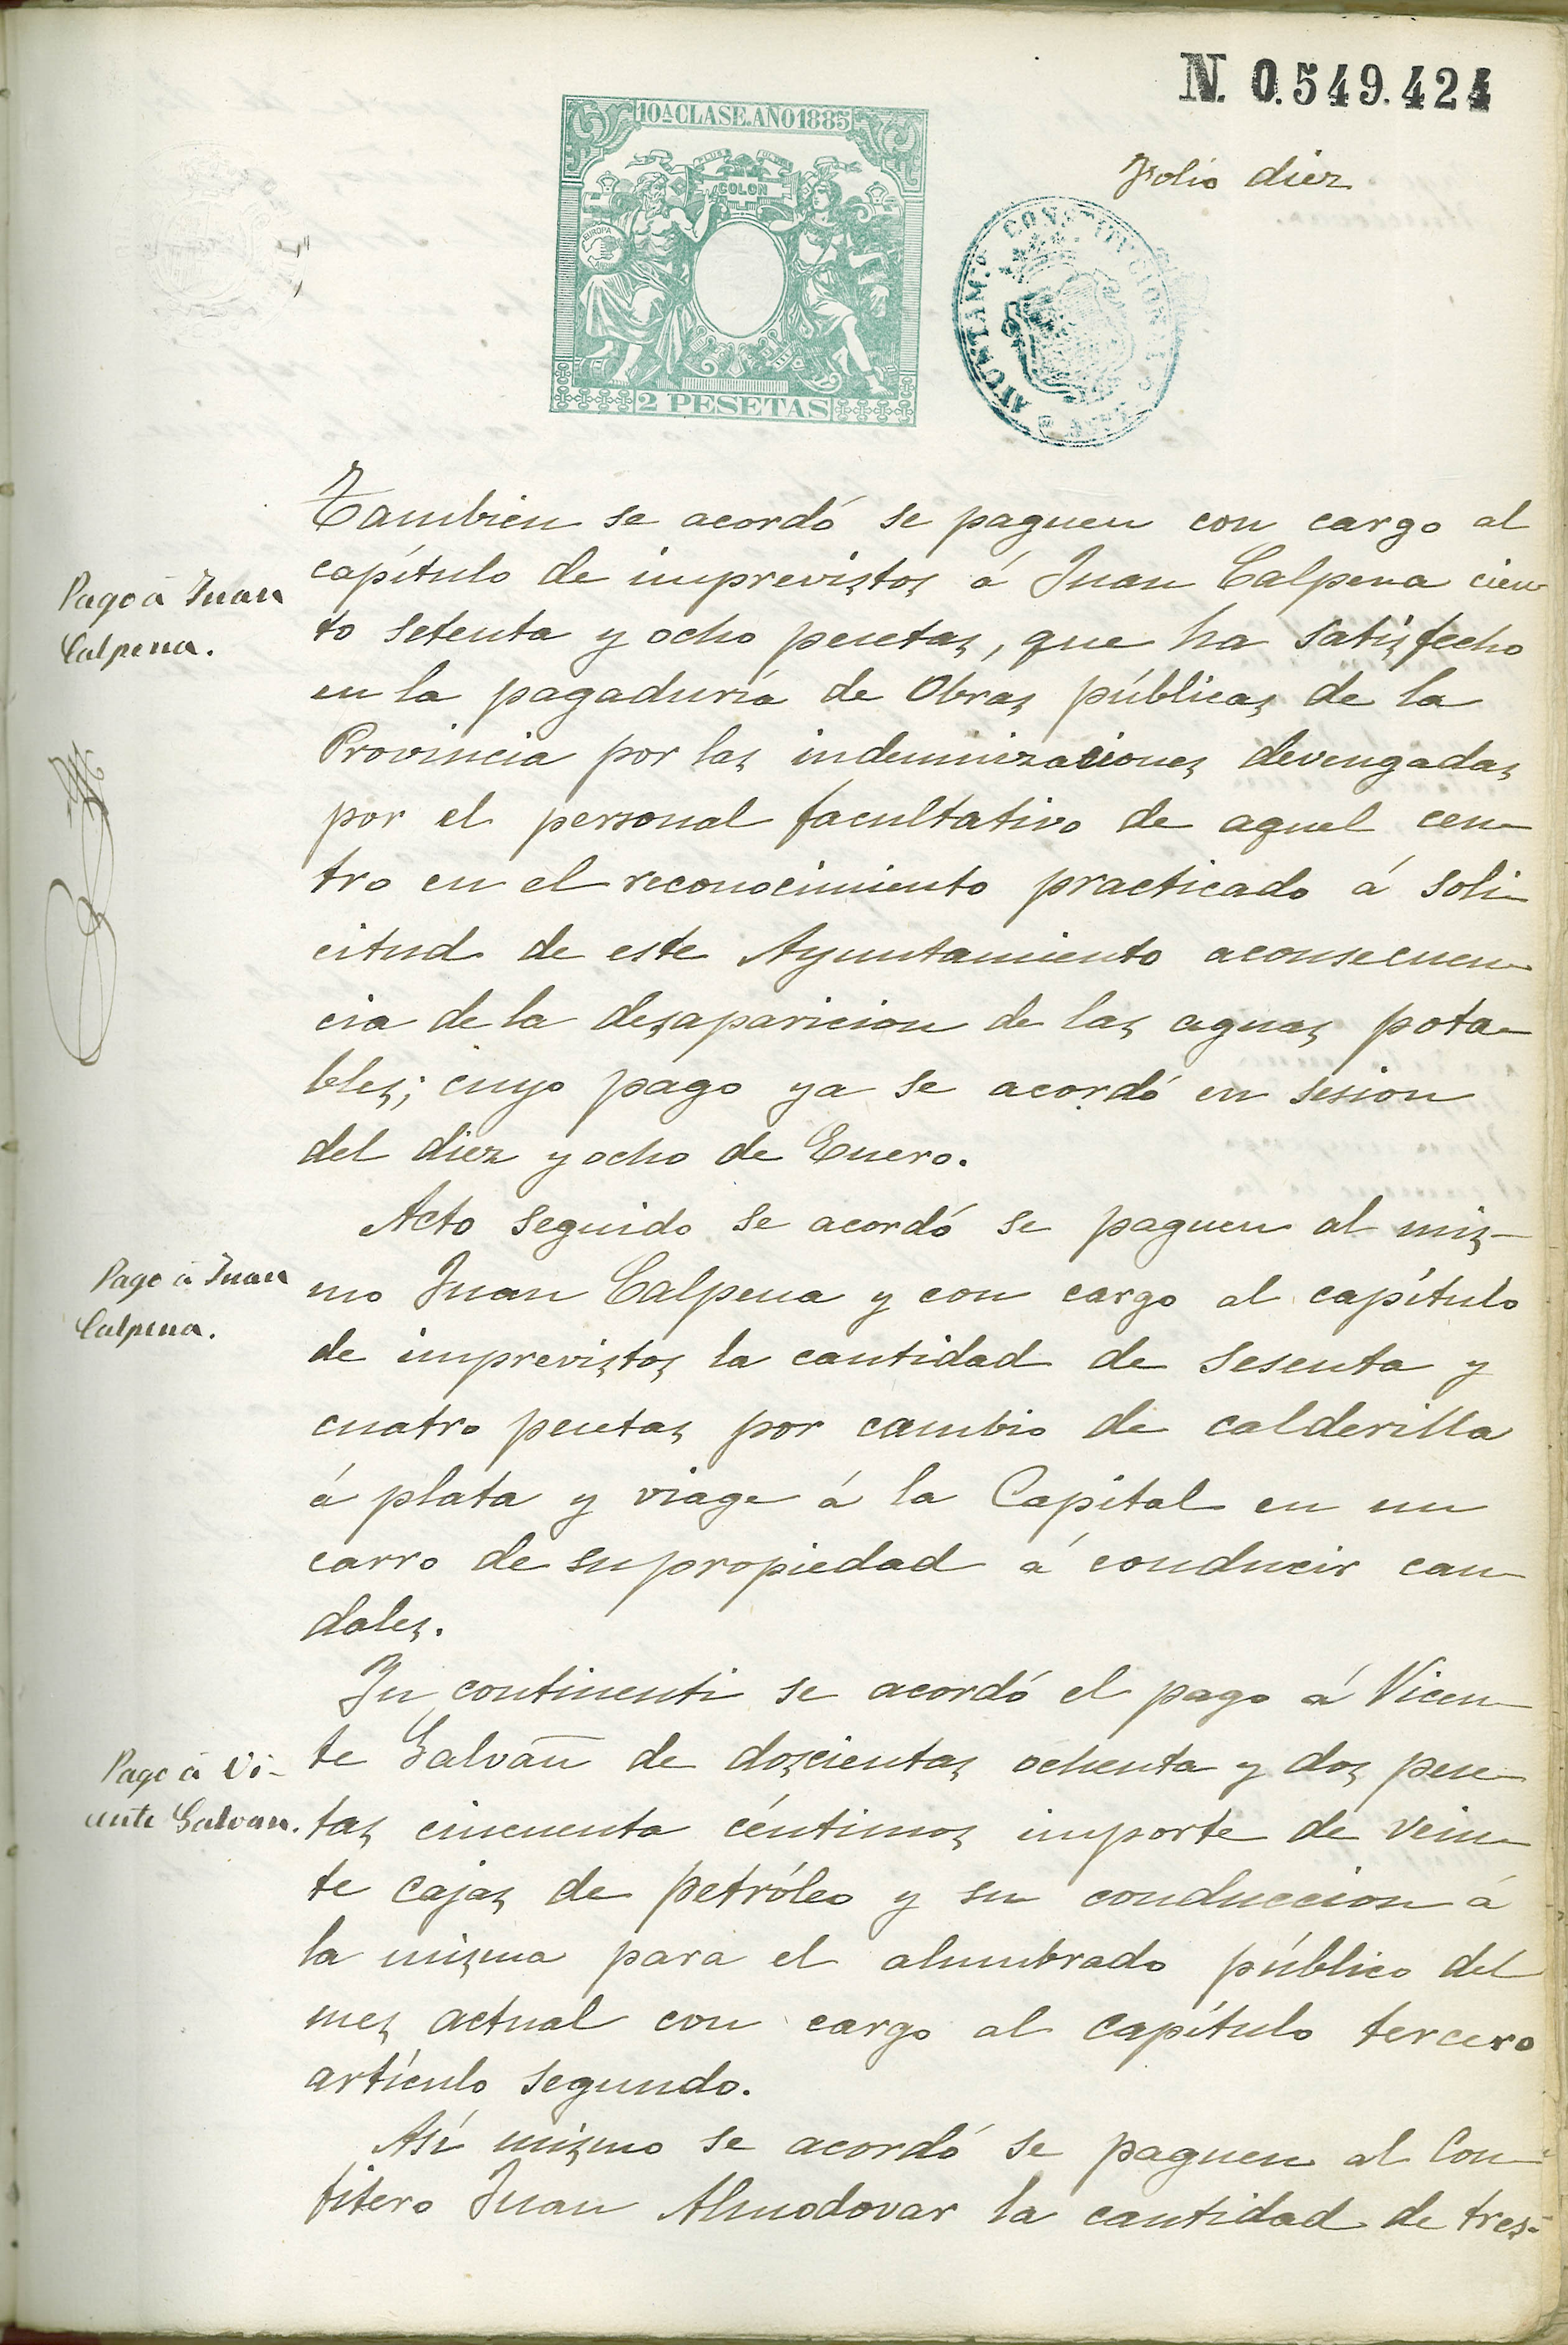 N. 0.549.424
10A CLASE. AÑO 1885
PLUS
COLON
EUROPA
2 PESETAS
Folio diez
AYUNTAM.º CONSTITUCIONAL
Tambien se acordó se paguen con cargo al
Pago á Juan
Calpena.
capítulo de imprevistos á Juan Calpena cien
to setenta y ocho pesetas, que ha satisfecho
en la pagaduría de Obras públicas de la
Provincia por las indemnizaciones devengadas
por el personal facultativo de aquel cen-
tro en el reconocimiento practicado á soli-
citud de este Ayuntamiento aconsecuen-
cia de la desaparicion de las aguas pota-
bles; cuyo pago ya se acordó en sesion
del diez y ocho de Enero.
Acto seguido se acordó se paguen al mis-
Pago á Juan
Calpena.
mo Juan Calpena y con cargo al capítulo
de imprevistos la cantidad de sesenta y
cuatro pesetas por cambio de calderilla
á plata y viage á la Capital en un
carro de su propiedad á conducir cau-
dales.
In continenti se acordó el pago á Vicen-
Pago á Vi-
cente Galvan.
te Galvañ de doscientas ochenta y dos pese-
tas cincuenta céntimos importe de vein-
te cajas de petróleo y su conduccion á
la misma para el alumbrado público del
mes actual con cargo al capítulo tercero
artículo segundo.
Así mismo se acordó se paguen al Con-
fitero Juan Almodovar la cantidad de tres-